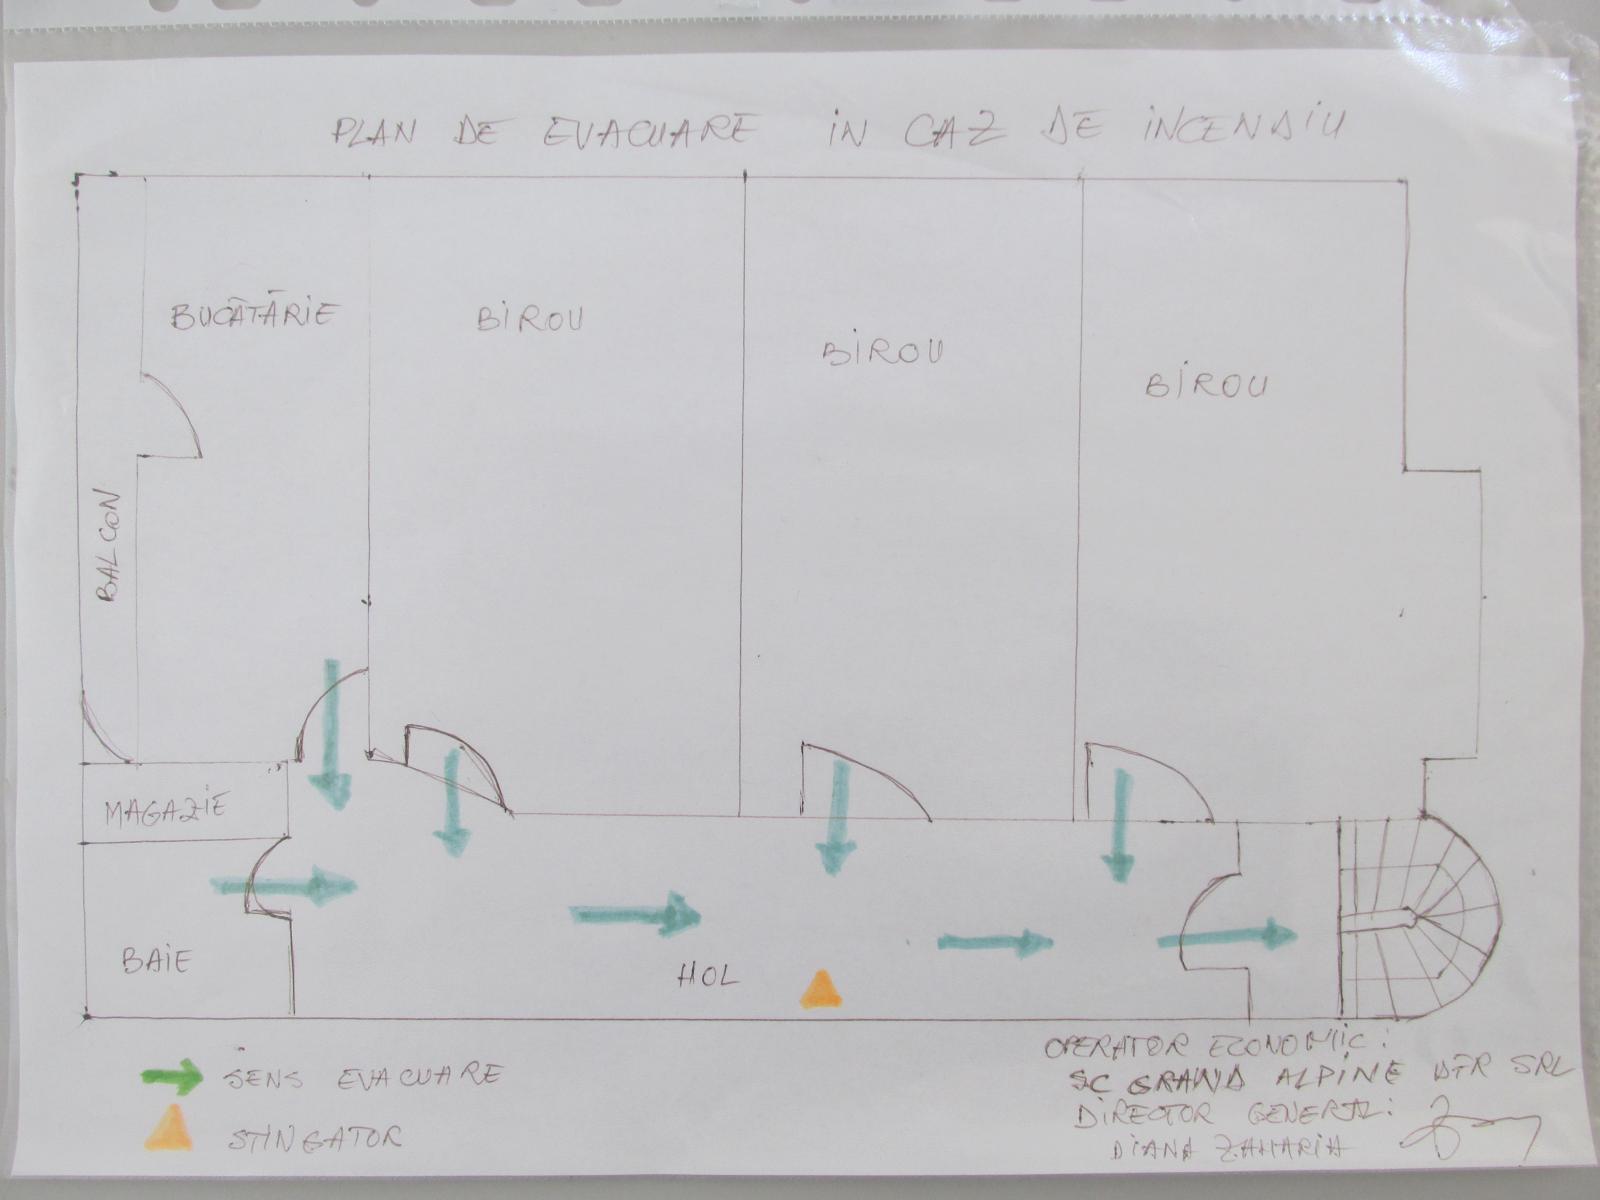 PLAN DE EVACUARE iN CAZ DE iNCENDiU
BUCĂTĂRiE
BiROU
BiROU
BiROU
BALCON
MAGAZiE
BAiE
HOL
SENS EVACUARE
STiNGATOR
OPERATOR ECONOMiC:
SC GRAND ALPiNE DTR SRL
DiRECTOR GENERAL:
DiANA ZAHARiA